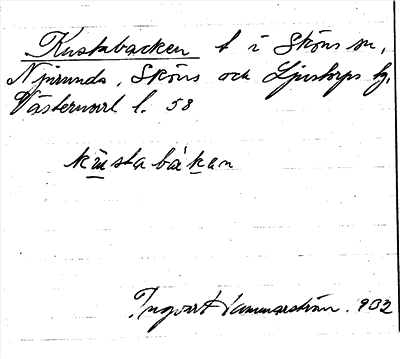 Kustabacken t i Sköns sn,
Njurunda, Sköns och Ljustorps tg,
Västernorrl l. 58
kùsta bàkan
Ingvar Hammarström. 1932